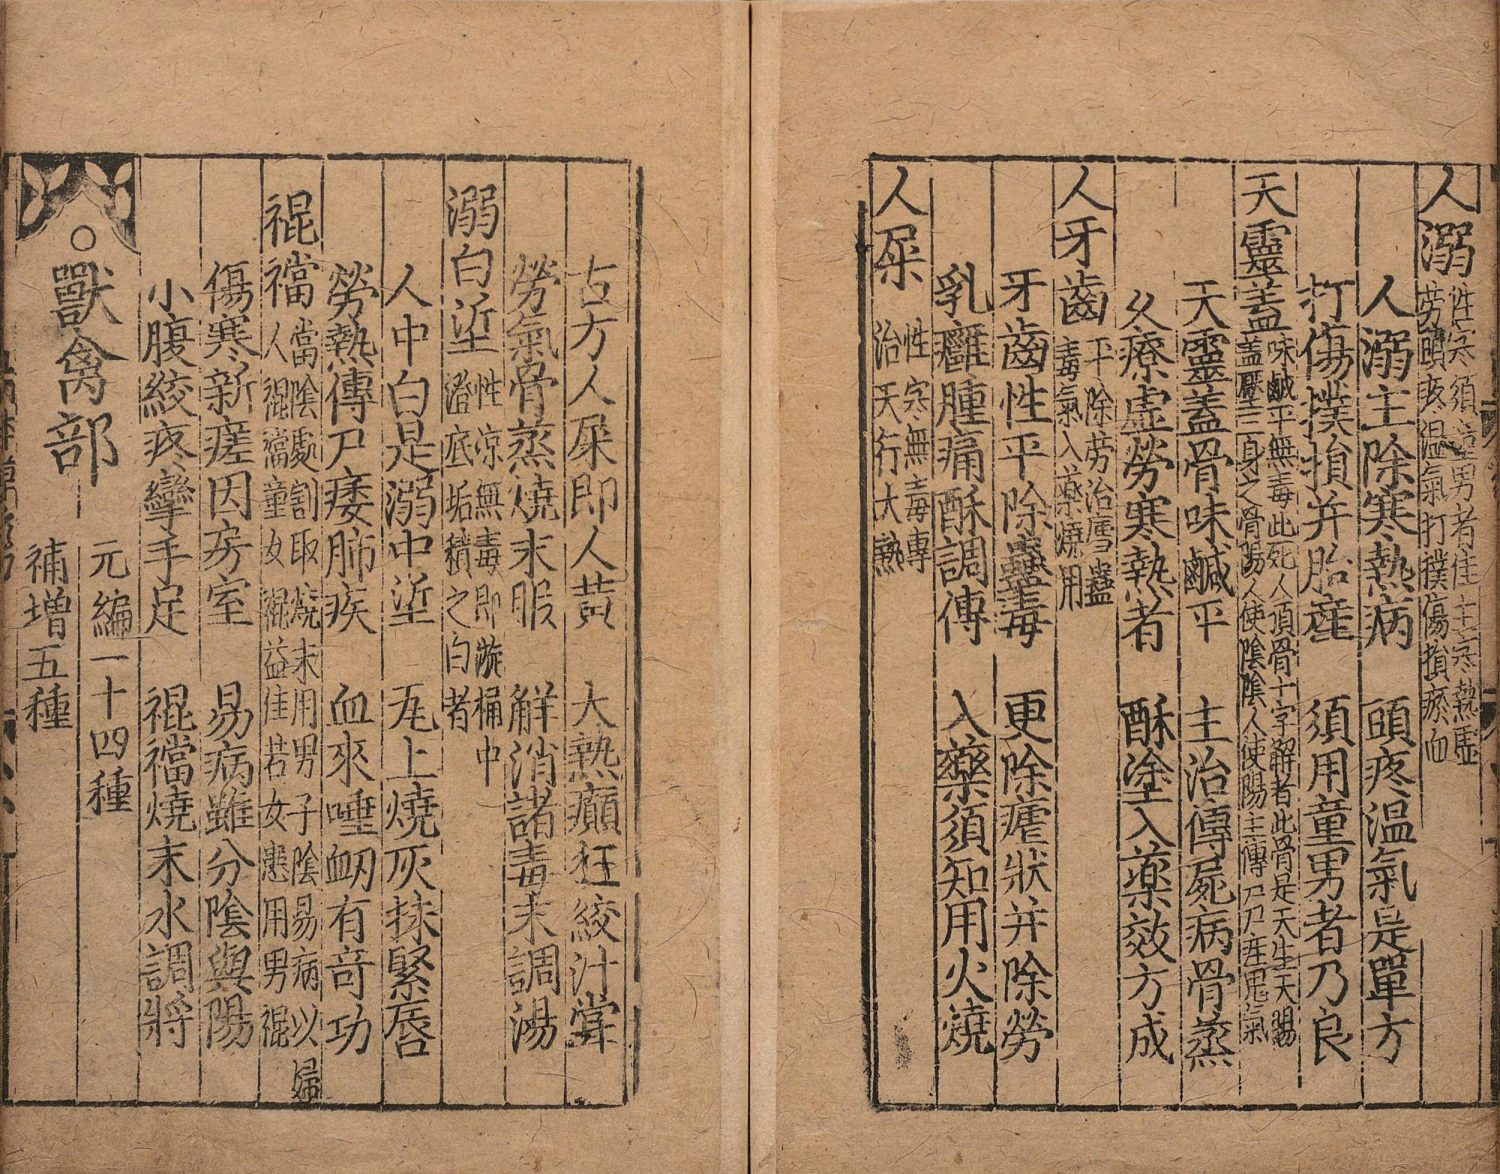 人溺 性寒須童男者佳主寒熱虛
勞頭疼溫氣打撲傷損瘀血
人溺主除寒熱病 頭疼溫氣是單方
打傷撲損并胎產 須用童男者乃良
天靈盖 味鹹平無毒此死人頂骨十字解者此骨是天生天賜
盖壓三身之骨陽人使陰陰人使陽主傳尸尸疰鬼氣
天靈盖骨味鹹平 主治傳屍病骨蒸
乆療虛勞寒熱者 酥塗入藥效方成
人牙齒 平除劳治瘧蠱
毒氣入藥燒用
牙齒性平除蠱毒 更除瘧狀并除勞
乳癰腫痛酥調傅 入藥須知用火燒
人屎 性寒無毒專
治天行大熱
古方人屎即人黃 大熱癲狂絞汁嘗
勞氣骨蒸燒末服 解消諸毒末調湯
溺白垽 性凉無毒即漩桶中
澄底垢積之白者
人中白是溺中垽 瓦上燒灰抹緊唇
勞熱傳尸痿肺疾 血來唾衂有竒功
裩襠 當陰處割取燒末用男子陰易病以婦
人裩襠童女裩益佳若女患用男裩
傷寒新瘥因房室 易病雖分陰與陽
小腹絞疼攣手足 裩襠燒末水調將
○獸禽部
元編一十四種
補增五種